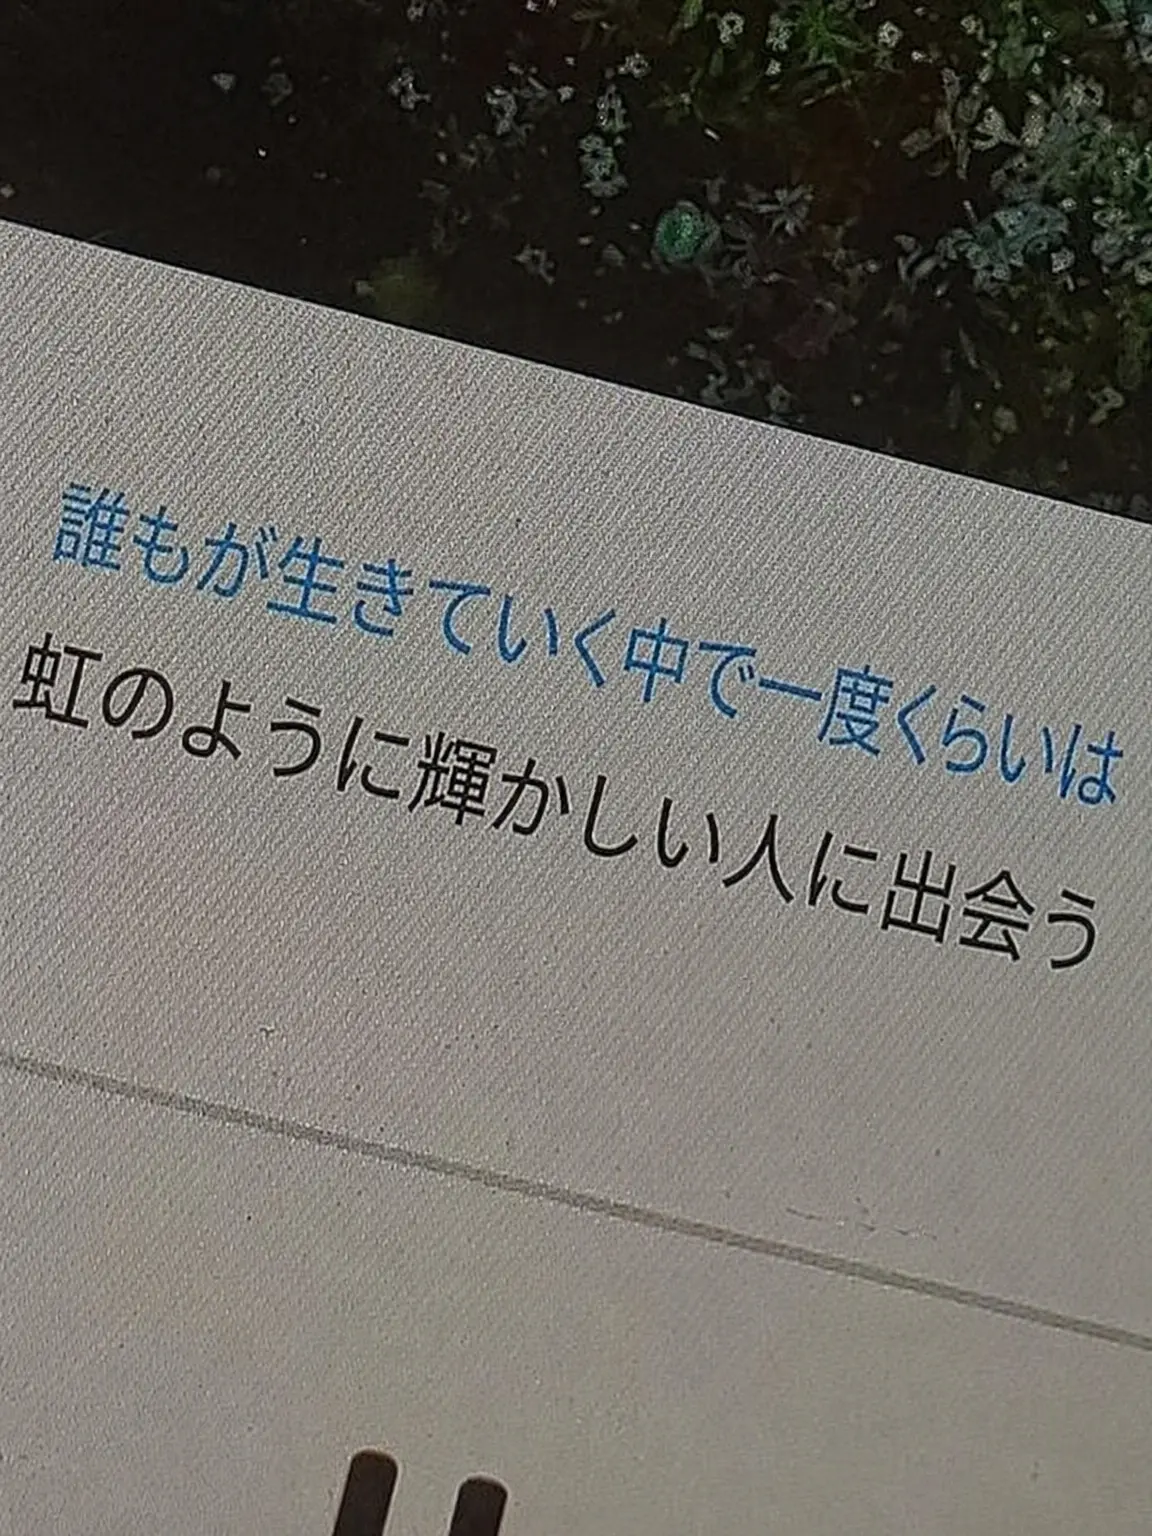 誰もが生きていく中で一度くらいは
虹のように輝かしい人に出会う